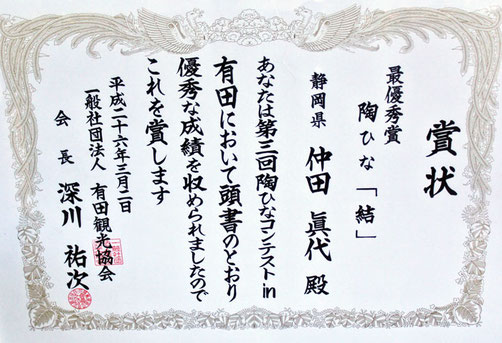 賞状
最優秀賞
陶ひな「結」
静岡県 仲田 眞代 殿
あなたは第三回陶ひなコンテストin
有田において頭書のとおり
優秀な成績を収められましたので
これを賞します
平成二十六年三月二日
一般社団法人 有田観光協会
会長 深川 祐次